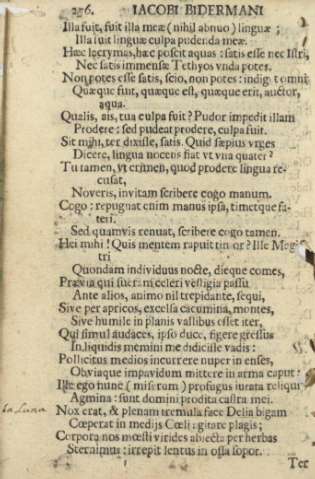 276. IACOBI BIDERMANI
Illa fuit, fuit illa meæ (nihil abnuo) linguæ;
Illa fuit linguæ culpa pudenda meæ.
Hæc lacrymas, hæc poscit aquas: satis esse nec Istri,
Nec satis immensæ Tethyos vnda potes.
Non potes esse satis, scio, non potes: indiget omni
Quæque fuit, quæque est, quæque erit, auctor,
aqua.
Qualis, ais, tua culpa fuit? Pudor impedit illam
Prodere: sed pudeat prodere, culpa fuit.
Sit mihi, ter dixisse, satis. Quid sæpius vrges
Dicere, lingua nocens fiat vt vna quater?
Tu tamen, vt crimen, quod prodere lingua re-
cusat,
Noveris, invitam scribere cogo manum.
Cogo: repugnat enim manus ipsa, timetque fa-
teri.
Sed quamvis renuat, scribere cogo tamen.
Hei mihi! Quis mentem rapuit timor? Ille Magi-
stri
Quondam individuus nocte, dieque comes,
Prævia qui fueram celeri vestigia passu
Ante alios, animo nil trepidante, sequi,
Sive per apricos, excelsa cacumina, montes,
Sive humile in planis vallibus esset iter,
Qui simul audaces, ipso duce, figere gressus
In liquidis memini me didicisse vadis:
Pollicitus medios incurrere nuper in enses,
Obviaque impavidum mittere in arma caput:
Ille ego nunc (miserum) profugus iurata reliqui
Agmina: sunt domini prodita castra mei.
Nox erat, & plenam tremula face Delia bigam
Cœperat in medijs Cœli agitare plagis;
Corpora nos mœsti virides abiecta per herbas
Sternimus: irrepit lentus in ossa sopor.
Ter
la Luna